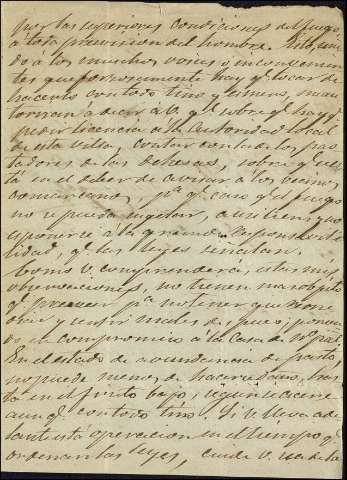 por las superiores condiciones del fuego,
a toda prevision del hombre. Esto, uni-
do á los muchos roces é inconvenien-
tes que forzosamente hay q.e tocar de
hacerlo con todo tino y esmero, me au-
torizan á decir á V. q.e sobre q.e hay q.e
pedir licencia á la autoridad local
de esa villa, contar con los pas-
tadores, de las dehesas, sobre q.e es-
tá en el deber de avisar á los vecinos
comarcanos, p.a q.e caso q.e el fuego
no se pueda sugetar, auxilien y no
esponerse á la grande responsabi-
lidad, q.e las leyes señalan.
Como V. comprenderá, estas mis
observaciones, no tienen mas objeto
q.e preveer p.a no tener que
y sufrir males de pues,
el compromiso á la Casa de
En el estado de abundancia de pasto,
no puede menos de hacerse daño, has-
ta en el fruto bajo, si quiera se
aunq.e con todo tino. Si V. lleva ade-
lante esta operacion en el tiempo q.e
ordenan las leyes, cuide V. de la